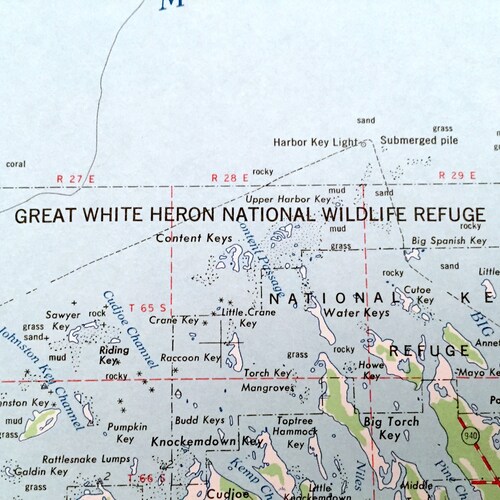 M
sand
grass
Harbor Key Light
Submerged pile
coral
R 27 E
R 28 E
rocky
R 29 E
mud
sand
Upper Harbor Key
GREAT WHITE HERON NATIONAL WILDLIFE REFUGE
mud
rocky
Content Keys
Content Passage
grass
Big Spanish Key
rocky
sand
Little
NATIONAL KE
Cutoe Key
T 65 S
Cudjoe Channel
Sawyer Key
rock
Crane Key
Little Crane Key
Water Keys
BIG
grass
sand
mud
Johnston Key Channel
Riding Key
Raccoon Key
grass
REFUGE
Annet
rocky
Torch Key Mangroves
rocky
Howe Key
Mayo Key
nston Key
mud
grass
Pumpkin Key
Budd Keys
Knockemdown Key
Toptree Hammock Key
Big Torch Key
940
Rattlesnake Lumps
Galdin Key
2
T 66 S
2
Cudjoe
Kemp Ch
Little Knockemdown
Niles
Middle
Pine